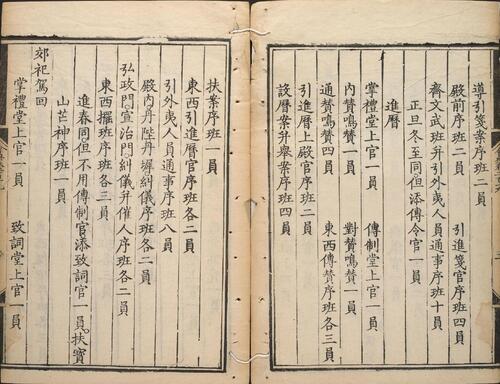 導引箋案序班二員
殿前序班二員 引進箋官序班四員
齊文武班并引外夷人員通事序班十員
正旦冬至同但添傳令官一員
進曆
掌禮堂上官一員 傳制堂上官一員
內贊鳴贊一員 對贊鳴贊一員
通贊鳴贊四員 東西傳贊序班各三員
引進曆上殿官序班二員
設曆案并舉案序班四員
扶案序班一員
東西引進曆官序班各二員
引外夷人員通事序班八員
殿內丹陛丹墀糾儀序班各二員
弘政門宣治門糾儀并催人序班各二員
東西擺班序班各三員
進春同但不用傳制官添致詞官一員扶寶
山芒神序班一員
郊祀駕回
掌禮堂上官一員 致詞堂上官一員